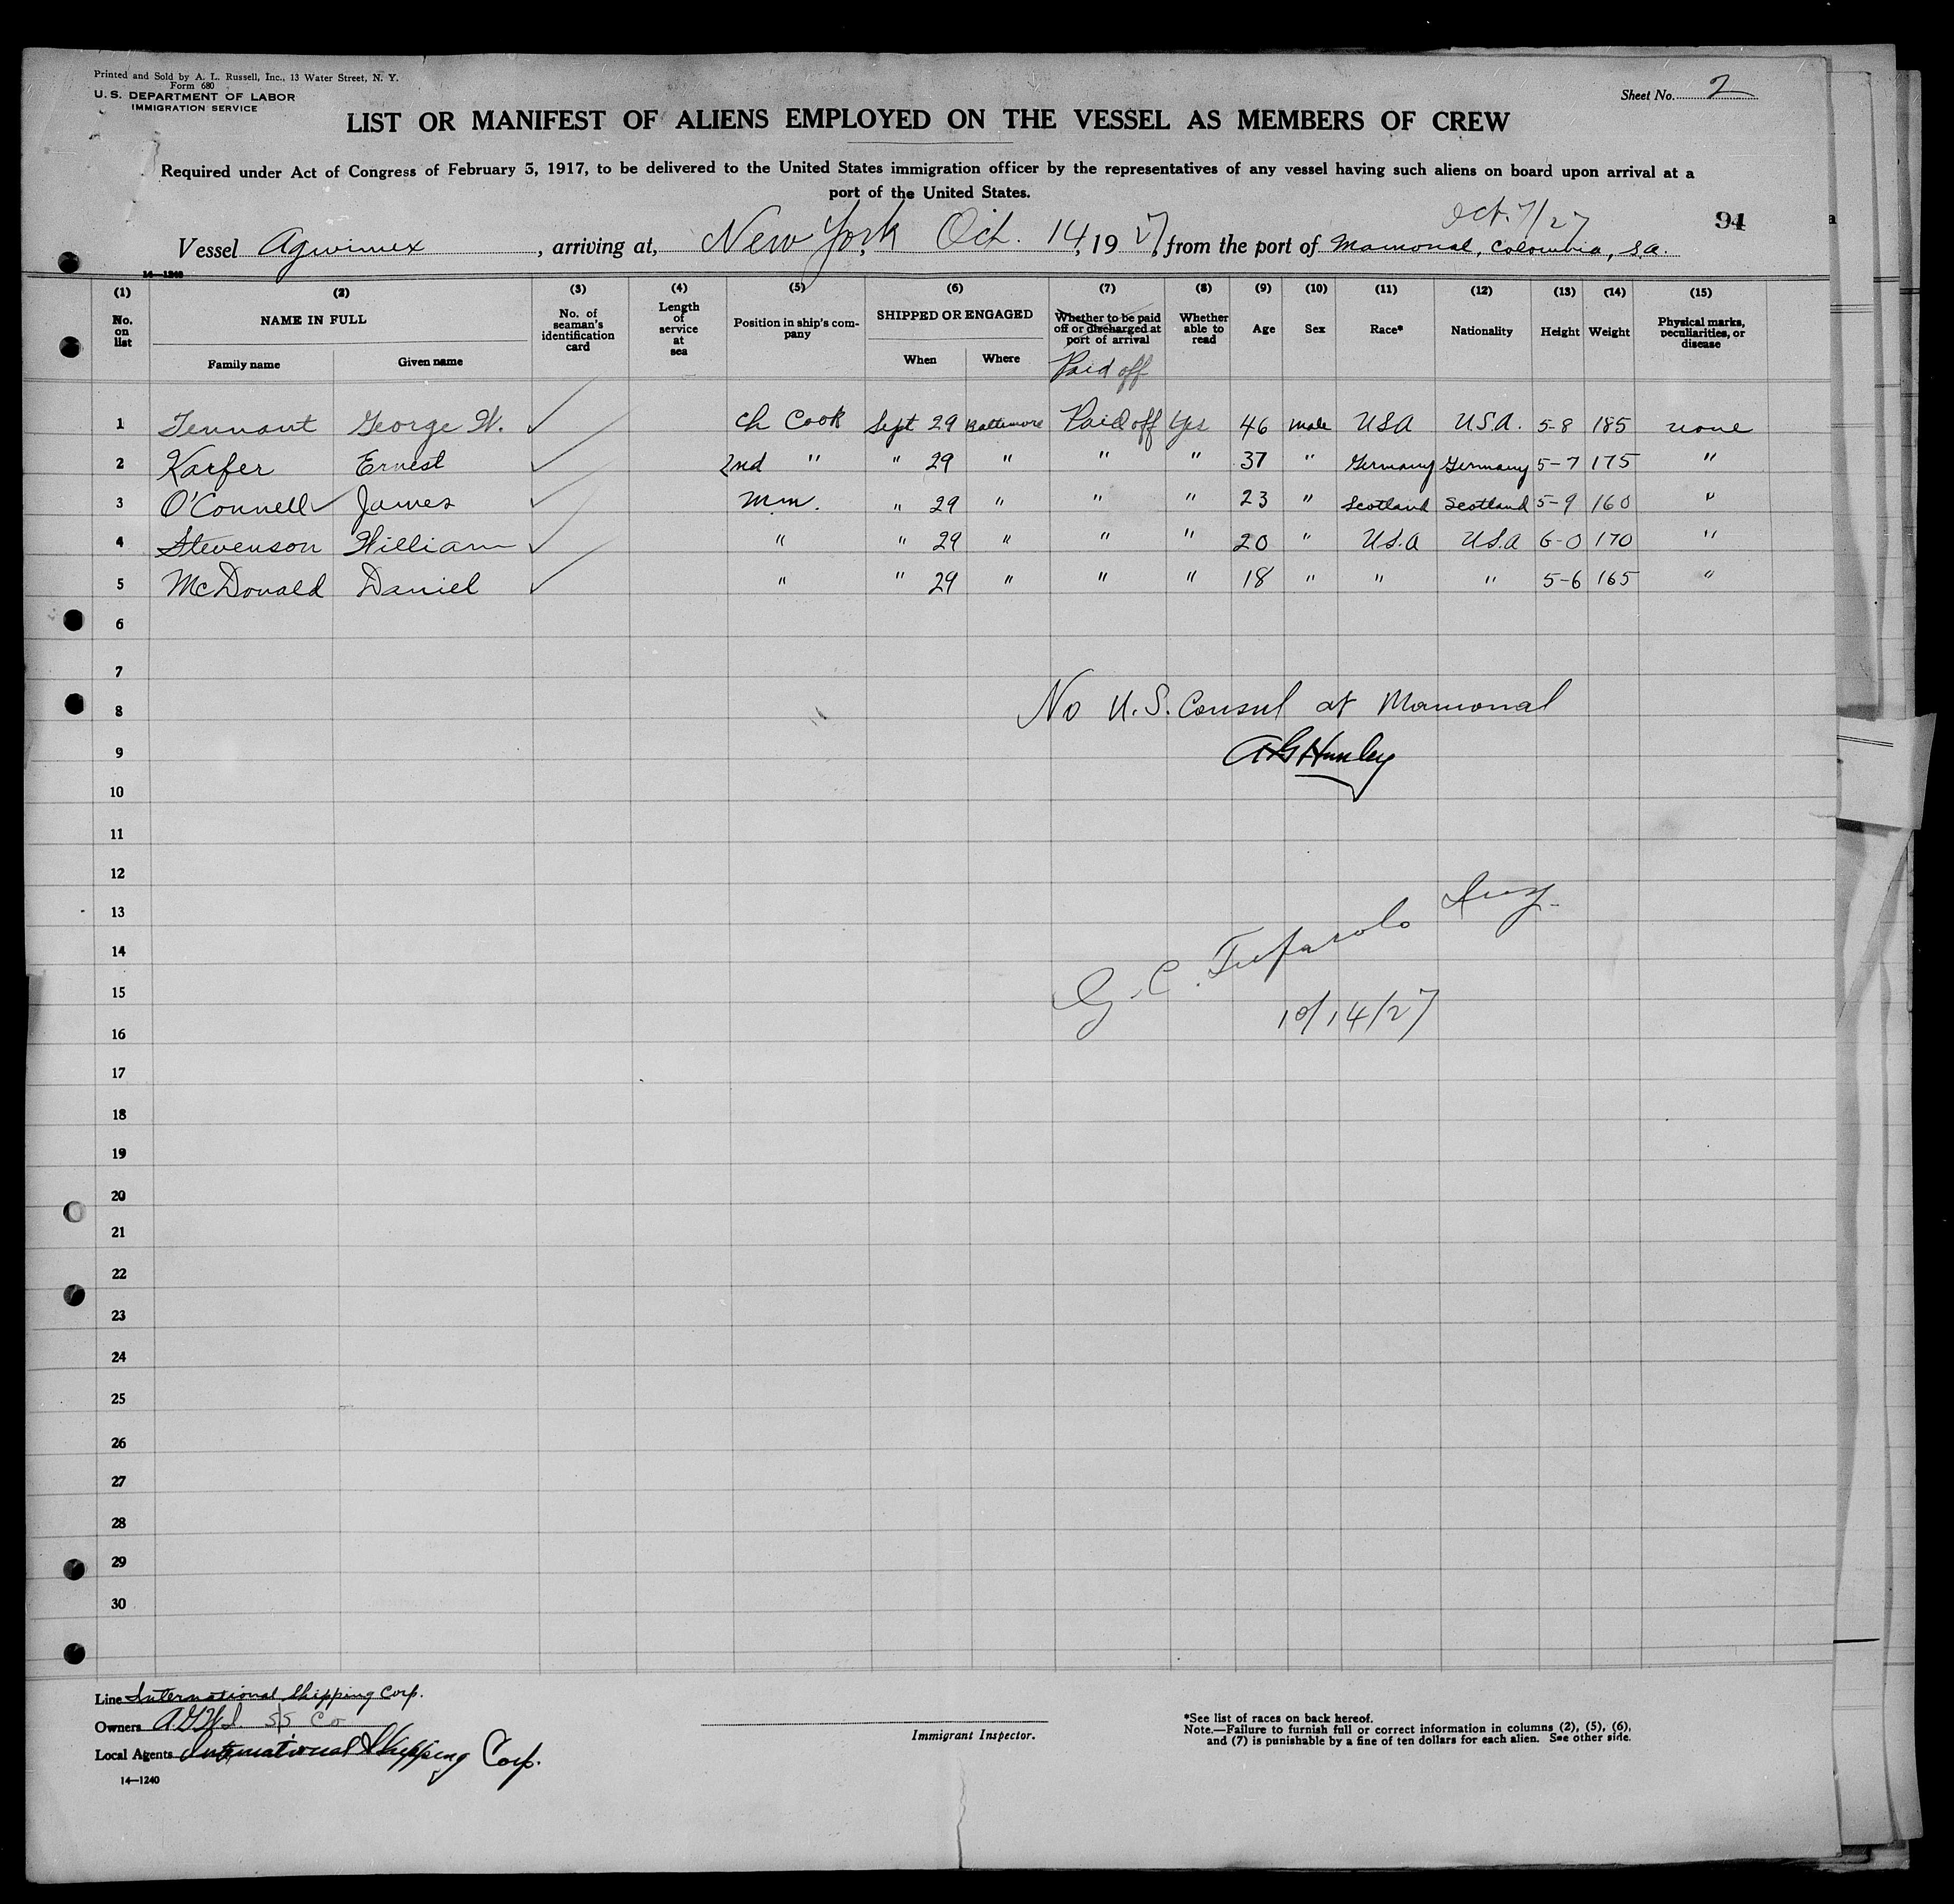 Printed and Sold by A. L. Russell, Inc., 13 Water Street, N. Y.
Form 680
U. S. DEPARTMENT OF LABOR
IMMIGRATION SERVICE
Sheet No. 2
LIST OR MANIFEST OF ALIENS EMPLOYED ON THE VESSEL AS MEMBERS OF CREW
Required under Act of Congress of February 5, 1917, to be delivered to the United States immigration officer by the representatives of any vessel having such aliens on board upon arrival at a
port of the United States.
Oct. 7/27
94
Vessel Agwimex, arriving at, New York, Oct. 14, 1927, from the port of Mamonal, Colombia, S.A.
14—1240
(1) (2) (3) (4) (5) (6) (7) (8) (9) (10) (11) (12) (13) (14) (15)
No. on list NAME IN FULL Family name Given name No. of seaman's identification card Length of service at sea Position in ship's company SHIPPED OR ENGAGED When Where Whether to be paid off or discharged at port of arrival Whether able to read Age Sex Race* Nationality Height Weight Physical marks, peculiarities, or disease
Paid off
1 Tennant George W. ✓ Ch Cook Sept 29 Baltimore Paid off Yes 46 Male USA U.S.A. 5-8 185 none
2 Karfer Ernest ✓ 2nd " " 29 " " " 37 " Germany Germany 5-7 175 "
3 O'Connell ✓ James ✓ M.m. " 29 " " " 23 " Scotland Scotland 5-9 160 "
4 Stevenson William ✓ " " 29 " " " 20 " U.S.A U.S.A 6-0 170 "
5 McDonald Daniel ✓ " " 29 " " " 18 " " " 5-6 165 "
6
7
No U.S. Consul at Mamonal
8
9 AG Hunley
10
11
12
13
14 G. C. Tufarolo
15
16 10/14/27
17
18
19
20
21
22
23
24
25
26
27
28
29
30
Line International Shipping Corp.
Owners A.G.W.I. S/S Co
Local Agents International Shipping Corp.
14—1240
Immigrant Inspector.
*See list of races on back hereof.
Note.—Failure to furnish full or correct information in columns (2), (5), (6),
and (7) is punishable by a fine of ten dollars for each alien. See other side.